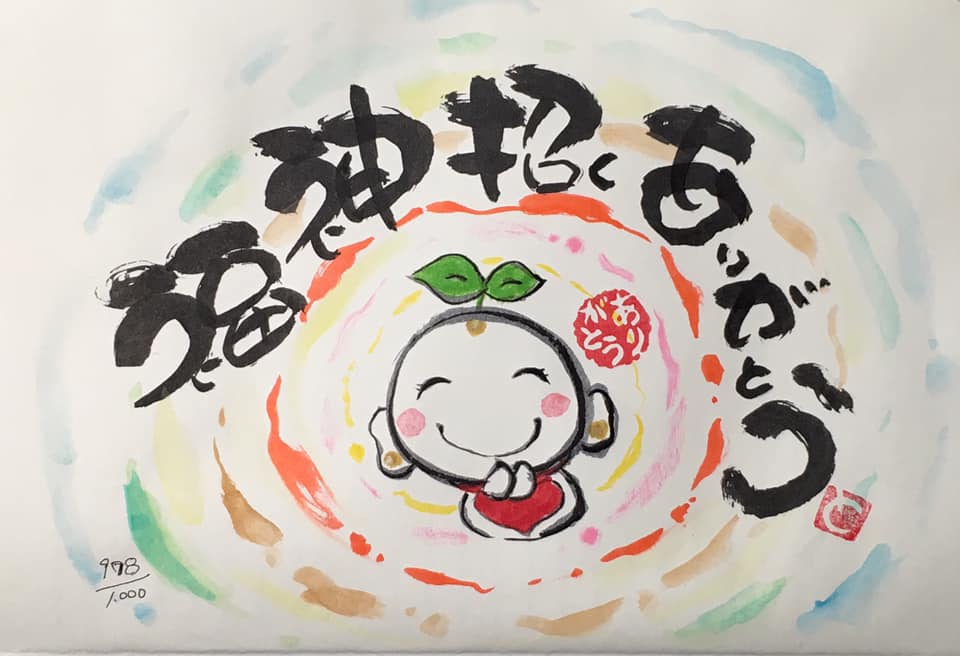 福神招くありがとう
ありがとう
978
1,000